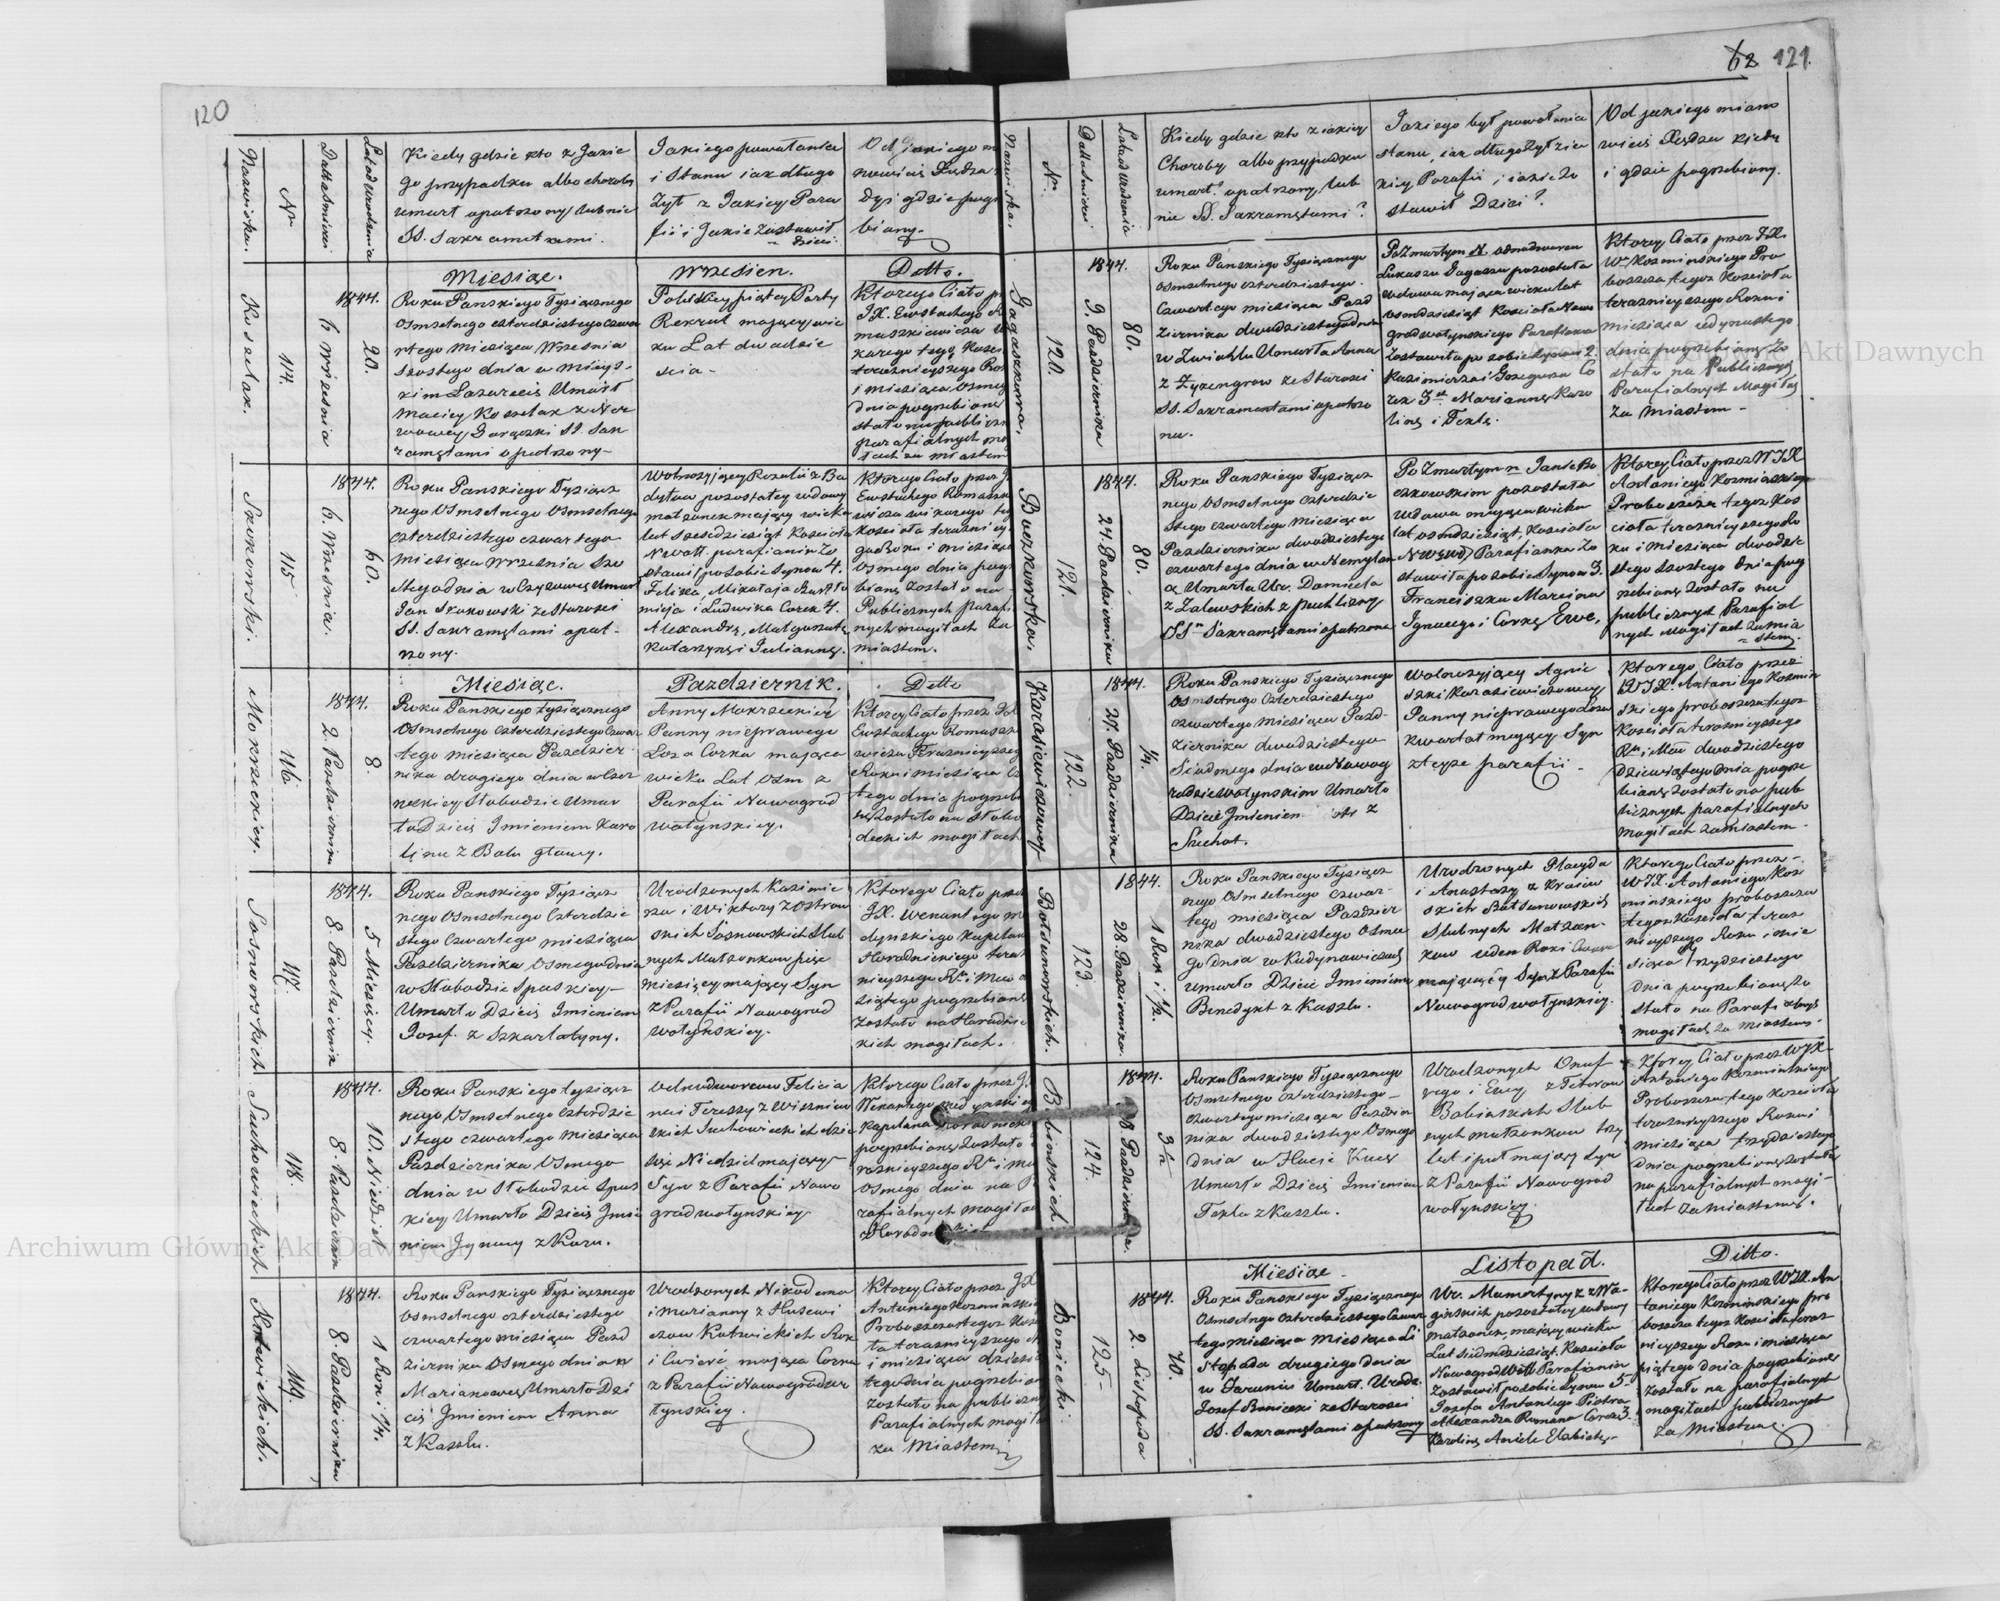 120
Nazwiska.
Nr
Datta śmierci
Lata od urodzenia
Kiedy gdzie kto z Jakie
go przypadku albo choroby
umarł opatrzony lub nie
SS. Sakramentami.
Jakiego powołania
i Stanu i jak długo
Żył z Jakiey Para
fii i Jakie zostawił
dzieci.
Od Jakiego
Xiędza
gdzie
biany.
Miesiąc.
Wrzesien.
Detto.
Koszelak.
114.
1844.
6 Września
20.
Roku Panskiego Tysiącznego
Osmsetnego czterdziestego czwar
tego Miesiąca Września
szostego dnia w mieys
kim Lazarecie Umarł
Maciey Koszelak z Ner
wowey Gorączki SS. Sak
ramętami opatrzony
Polskiey piątey Party
Rekrut mający wie
ku Lat dwadzie
scia
Ktorego Ciało
JX. Ewstachego
Skokowski.
115
1844.
6. Września.
60.
Roku Panskiego Tysiącz
nego Osmsetnego Osmsetnego
czterdziestego czwartego
Miesiąca Września Szo
stego dnia Umarł
Jan Skokowski ze Starosci
SS. Sakramętami opat-
rzony.
pozostałey wdowy
małzonek mający wieku
lat szesédziesiąt Kościoła
parafianin Zo
stawił po sobie Synow 4.
Felixa, Mikołaja
i Ludwika Corek 4.
Alexandrę, Małgorzatę
Katarzynę i Juliannę.
Ktorego Ciało przez J
Ewstachego
kościoła
go Roku i miesiąca
Osmego dnia
biany został na
Publicznych parafi
nych mogiłach za
miastem.
Miesiąc.
Pazdziernik.
Detto
Mokrzeckiey.
116.
1844.
2 Pazdziernika
8.
Roku Panskiego tysiącznego
Osmsetnego czterdziestego czwar
tego miesiąca Pazdzier
nika drugiego dnia
Słobodzie Umar
ło Dziecie Imieniem Karo
lina z Bolu głowy.
Anny Mokrzeckiey
Panny nieprawego
Łoza Corka mająca
wieku Lat osm z
Parafii Nowogrod
wołynskiey.
Ktorey Ciało przez JX
Ewstachego
Roku i miesiąca
tego dnia pogrzeb
Zostało na Słobo
deckich mogiłach
Sosnowskich
117.
1844.
8. Pazdziernik
5 Miesięcy.
Roku Panskiego Tysiącz
nego Osmsetnego Czterdzie
stego Czwartego miesiąca
Pazdziernika Osmego dnia
w Słobodzie Spaskiey
Umarło Dziecię Imieniem
Josef z Szkarlatyny.
Urodzonych Kazimie
rza i Wiktory z Ostrow
skich Sosnowskich Slub
nych Małzonkow pięc
miesięcy mający Syn
z Parafii Nowogrod
wołynskiey.
Ktorego Ciało prze
JX. Wenantego
Kapelana
Horodnickiego teraz
nieyszego Rku i Mca
siątego pogrzebiane
Zostało na Horodnic
kich mogiłach.
Suchowieckich
118.
1844.
8. Pazdziernik
10. Niedziel
Roku Panskiego tysiącz
nego Osmsetnego czterdzie
stego czwartego miesiąca
Pazdziernika Osmego
dnia w Słobodzie Spas
kiey Umarło Dziecię Imie
niem Ignacy z Kaszlu.
Felicia
na i Teressy z Wiszniew
skich Suchowieckich dzie
sięć Niedziel mający
Syn z Parafii Nowo
gradwołynskiey
Ktorego Ciało przez J
Wenantego
Kapelana
pogrzebione Zostało
raznieyszego Rku i M
Osmego dnia na
rafialnych mogiłac
Kotwickich.
119.
1844.
8. Pazdziernika
1 Rok i 1/4.
Roku Panskiego Tysiącznego
Osmsetnego czterdziestego
czwartego miesiąca Pazd
ziernika Osmego dnia w
Marianowce Umarło Dzi
cię Imieniem Anna
z Kaszlu.
Urodzonych Nikodema
i Marianny z
Kotwickich Rok
i Cwierć mająca Corka
z Parafii Nowogradwo
łynskiey.
Ktorey Ciało przez JX
Antoniego Kozminski
Proboszcza tegoz Kos
ła teraznieyszego
i miesiąca dziesią
tego dnia pogrzebion
Zostało na publiczn
Parafialnych mogił
za Miastem
121.
Nazwiska.
Nr.
Datta śmierci
Lata od urodzenia
Kiedy gdzie kto z jakiey
Choroby albo przypadku
umarł opatrzony, lub
nie SS. Sakramętami?
Jakiego był powołania
stanu, jak długo Zył z ja
kiey Parafii i jakie Zo
stawił Dzieci?
Od jakiego miano
wicie Xiędza kiedy
i gdzie pogrzebiony.
Gogaszkowa.
120.
1844.
9. Pazdziernika
80.
Roku Panskiego Tysiącznego
Osmsetnego czterdziestego
Czwartego miesiąca Pazd
ziernika dnia
w Zwiahlu Umarła Anna
z ze Starosci
SS. Sakramentami opatrzo
na.
Po Zmartym
Łukaszu pozostała
wdowa mająca wieku lat
osmdziesiąt Kosciola Nowo
gradwołynskiego Parafianka
Zostawiła po sobie Synow 2.
Kazimierza i Grzegorza Co
rek 3. Mariannę, Karo
linę i Teklę.
Ktorey Ciało przez JX.
W. Kozminskiego Pro
boszcza tegoz Kościoła
teraznieyszego Roku i
miesiąca jedynastego
dnia pogrzebiany Zo
stało na Publicznych
Parafialnych Mogiłac
Za Miastem
Buczkowska.
121.
1844.
24. Pazdziernika
80.
Roku Panskiego Tysiącz
nego Osmsetnego czterdzie
stego czwartego Miesiąca
Pazdziernika dwudziestego
czwartego dnia
Umarła Ur. Domicela
z Zalewskich z puchliny
SS. Sakramętami opatrzona
Po Zmartym
pozostała
Wdowa mająca wieku
lat osmdziesiąt, Kosciola
Parafianka Zo
stawiła po sobie Synow 3.
Franciszka Marcina
Ignacego i Corkę Ewe,
Ktorey Ciało przez WJX
Antoniego Kozminskiego
Proboszcza tegoz Kos
cioła teraznieyszego Ro
ku i miesiąca dwudzie
stego szostego dnia pog
rzebione Zostało na
publicznych Parafial
nych Mogiłach za mia
stem.
Karasiewiczowey
122.
1844.
27. Pazdziernika
1/4.
Roku Panskiego Tysiącznego
Osmsetnego Czterdziestego
czwartego miesiąca Pazd-
ziernika dwudziestego
Siodmego dnia w Nowog
rodziewołynskim Umarło
Dziecie Imieniem z
Suchot.
Wolnozyjącey Agnie
szki Karasiewiczowey
Panny nieprawego łoza
kwartał mający Syn
z teyze parafii
Ktorego Ciało przez
WJX. Antoniego Kozmin
skiego proboszcza tegoz
Kościoła teraznieyszego
Rku i Mca dwudziestego
Dziewiątego dnia pogrze
biane Zostało na pub
licznych parafialnych
Mogiłach za miastem.
Botsunowskich.
123.
1844.
28 Pazdziernika.
1 Rok i 1/2.
Roku Panskiego Tysiącz
nego Osmsetnego czwar-
tego miesiąca Pazdzier
nika dwudziestego Osme
go dnia w Kudynowiczach
umarło Dziecie Imieniem
Benedykt z Kaszlu.
Urodzonych Placyda
i Anastazy z Krasow
skich Botsunowskich
Slubnych Małzon-
kow jeden Rok i
mający Syn z Parafii
Nowogrodwołynskiey.
Ktorego Ciało przez
WJX Antoniego Koz
minskiego proboszcza
tegoz Kosciola teraz
nieyszego Roku i mie
siąca trzydziestego
dnia pogrzebiane Zo
stało na Parafialnych
mogiłach za miastem.
Babinskich
124.
1844.
28 Pazdziernika.
3 1/2
Roku Panskiego Tysiącznego
Osmsetnego czterdziestego
czwartego miesiąca Pazdzie
nika dwudziestego Osmego
dnia w Hucie
Umarło Dziecię Imieniem
Tekla z Kaszlu.
Urodzonych Onuf
rego i Ewy
Babinskich Slub
nych małzonkow trzy
lat i puł mający Syn
z Parafii Nowogrod
wołynskiey
Ktorey Ciało przez WJX.
Antoniego Kozminskiego
Proboszcza tego kościoła
teraznieyszego Roku i
miesiąca trzydziestego
Dnia pogrzebione zostało
na parafialnych mogi-
łach za Miastem.
Miesiąc
Listopad.
Ditto.
Boniecki.
125
1844.
2. Listopada
70.
Roku Panskiego Tysiącznego
Osmsetnego czterdziestego czwar
tego miesiąca miesiąca Li
stopada drugiego dnia
w Jaruniu Umarł Urodz.
Josef Boniecki ze Starosci
SS. Sakramętami opatrzony
Ur.
pozostałey wdowy
małzonek, mający wieku
Lat siedmdziesiąt Kościoła
Parafianin
Zostawił po sobie Synow 5
Josefa Antoniego Piotra
Alexandra Romana Corek 3.
Karolinę Aniele Elzbietę
Ktorego Ciało przez WJX. An
toniego Kozminskiego pro
boszcza tegoz kościoła teraz
nieyszego Roku i miesiąca
piątego dnia pogrzebione
zostało na parafialnych
mogiłach publicznych
Za Miastem
Archiwum Główne Akt Dawnych
Archiwum Główne Akt Dawnych